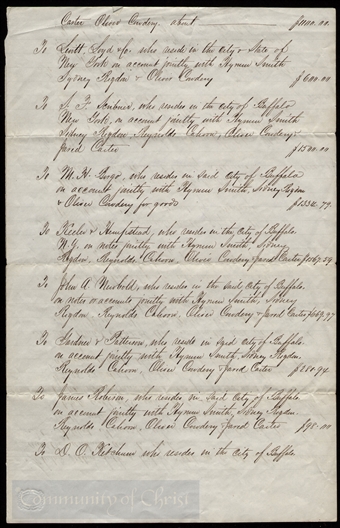 Carter Oliver Cowdery. about $1100.00.
To Levitt, Loyd & Co. who reside in the city & State of
New York on account jointly with Hyrum Smith
Sydney Rigdon & Oliver Cowdery $600.00
To S. F. who resides in the city of Buffalo
New York, on account jointly with Hyrum Smith
Sidney Rigdon, Reynolds Cahoon, Oliver Cowdery &
Jared Carter $1500.00
To M. H. who resides in said city of Buffalo
on account jointly with Hyrum Smith, Sidney Rigdon
& Oliver Cowdery for goods
To Keeler & Hempstead, who reside in said city of Buffalo
N.Y. on notes jointly with Hyrum Smith, Sydney
Rigdon, Reynolds Cahoon, Oliver Cowdery & Jared Carter
To John A Newbold, who resides in the said city of Buffalo
on notes & accounts jointly with Hyrum Smith, Sidney
Rigdon Reynolds Cahoon, Oliver Cowdery & Jared Carter
To Gardner & Patterson, who reside in said city of Buffalo
on account jointly with Hyrum Smith, Sidney Rigdon,
Reynolds Cahoon, Oliver Cowdery & Jared Carter
To James Robison, who resides in said City of Buffalo
on account jointly with Hyrum Smith, Sidney Rigdon
Reynolds Cahoon, Oliver Cowdery & Jared Carter
To D. O. Ketchum who resides in the city of Buffalo
Community of Christ